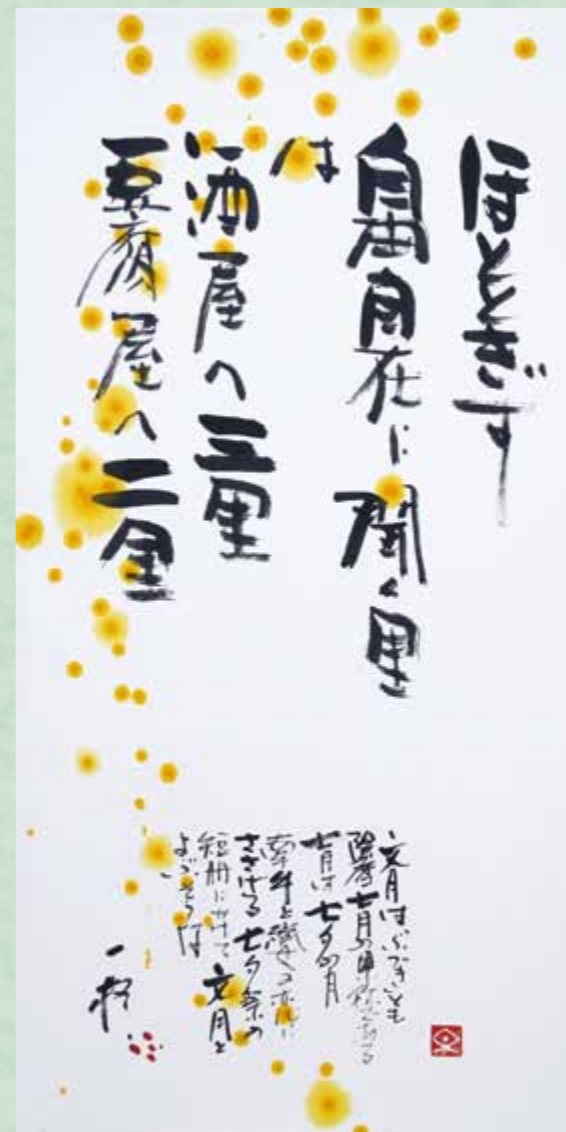 ほととぎす
自由自在に聞く里
は
酒屋へ三里
豆腐屋へ二里
文月はふづきとも
陰暦七月の異称である
七月は七夕の月
牽牛と織女の恋に
ささげる七夕祭の
短冊にかけて文月と
よぶそうな